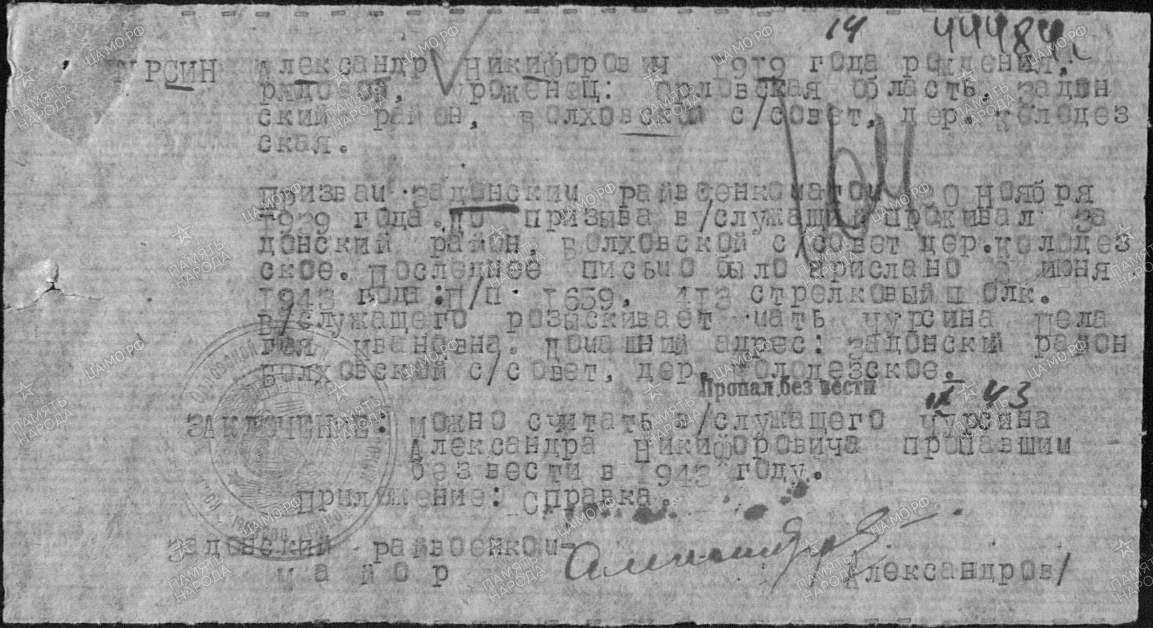 14 44484
ЧУРСИН Александр Никифорович 1919 года рождения,
рядовой, уроженец: Орловская область, Задон
ский район, Волховской с/совет, дер. Колодез
ская.
Призван Задонским райвоенкоматом 30 ноября
1939 года. До призыва в/служащий проживал За
донский район, Волховской с/совет дер. Колодез
ское. Последнее письмо было прислано июня
1943 года: П/п 1659, 113 стрелковый полк.
В/служащего розыскивает мать Чурсина Пела
гея Ивановна. Домашний адрес: Задонский район
Волховской с/совет, дер. Колодезское.
Пропал без вести IX 43
ЗАКЛЮЧЕНИЕ: Можно считать в/служащего Чурсина
Александра Никифоровича пропавшим
без вести в 1943 году.
Приложение: Справка.
Задонский райвоенком-
майор Александров/